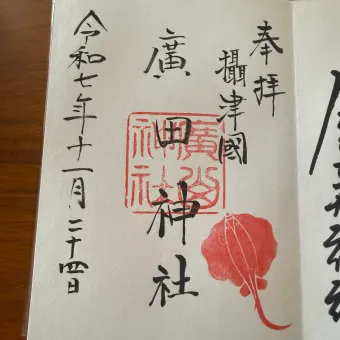 奉拝
攝津國
廣田神社
令和七年十一月二十四日
廣田神社